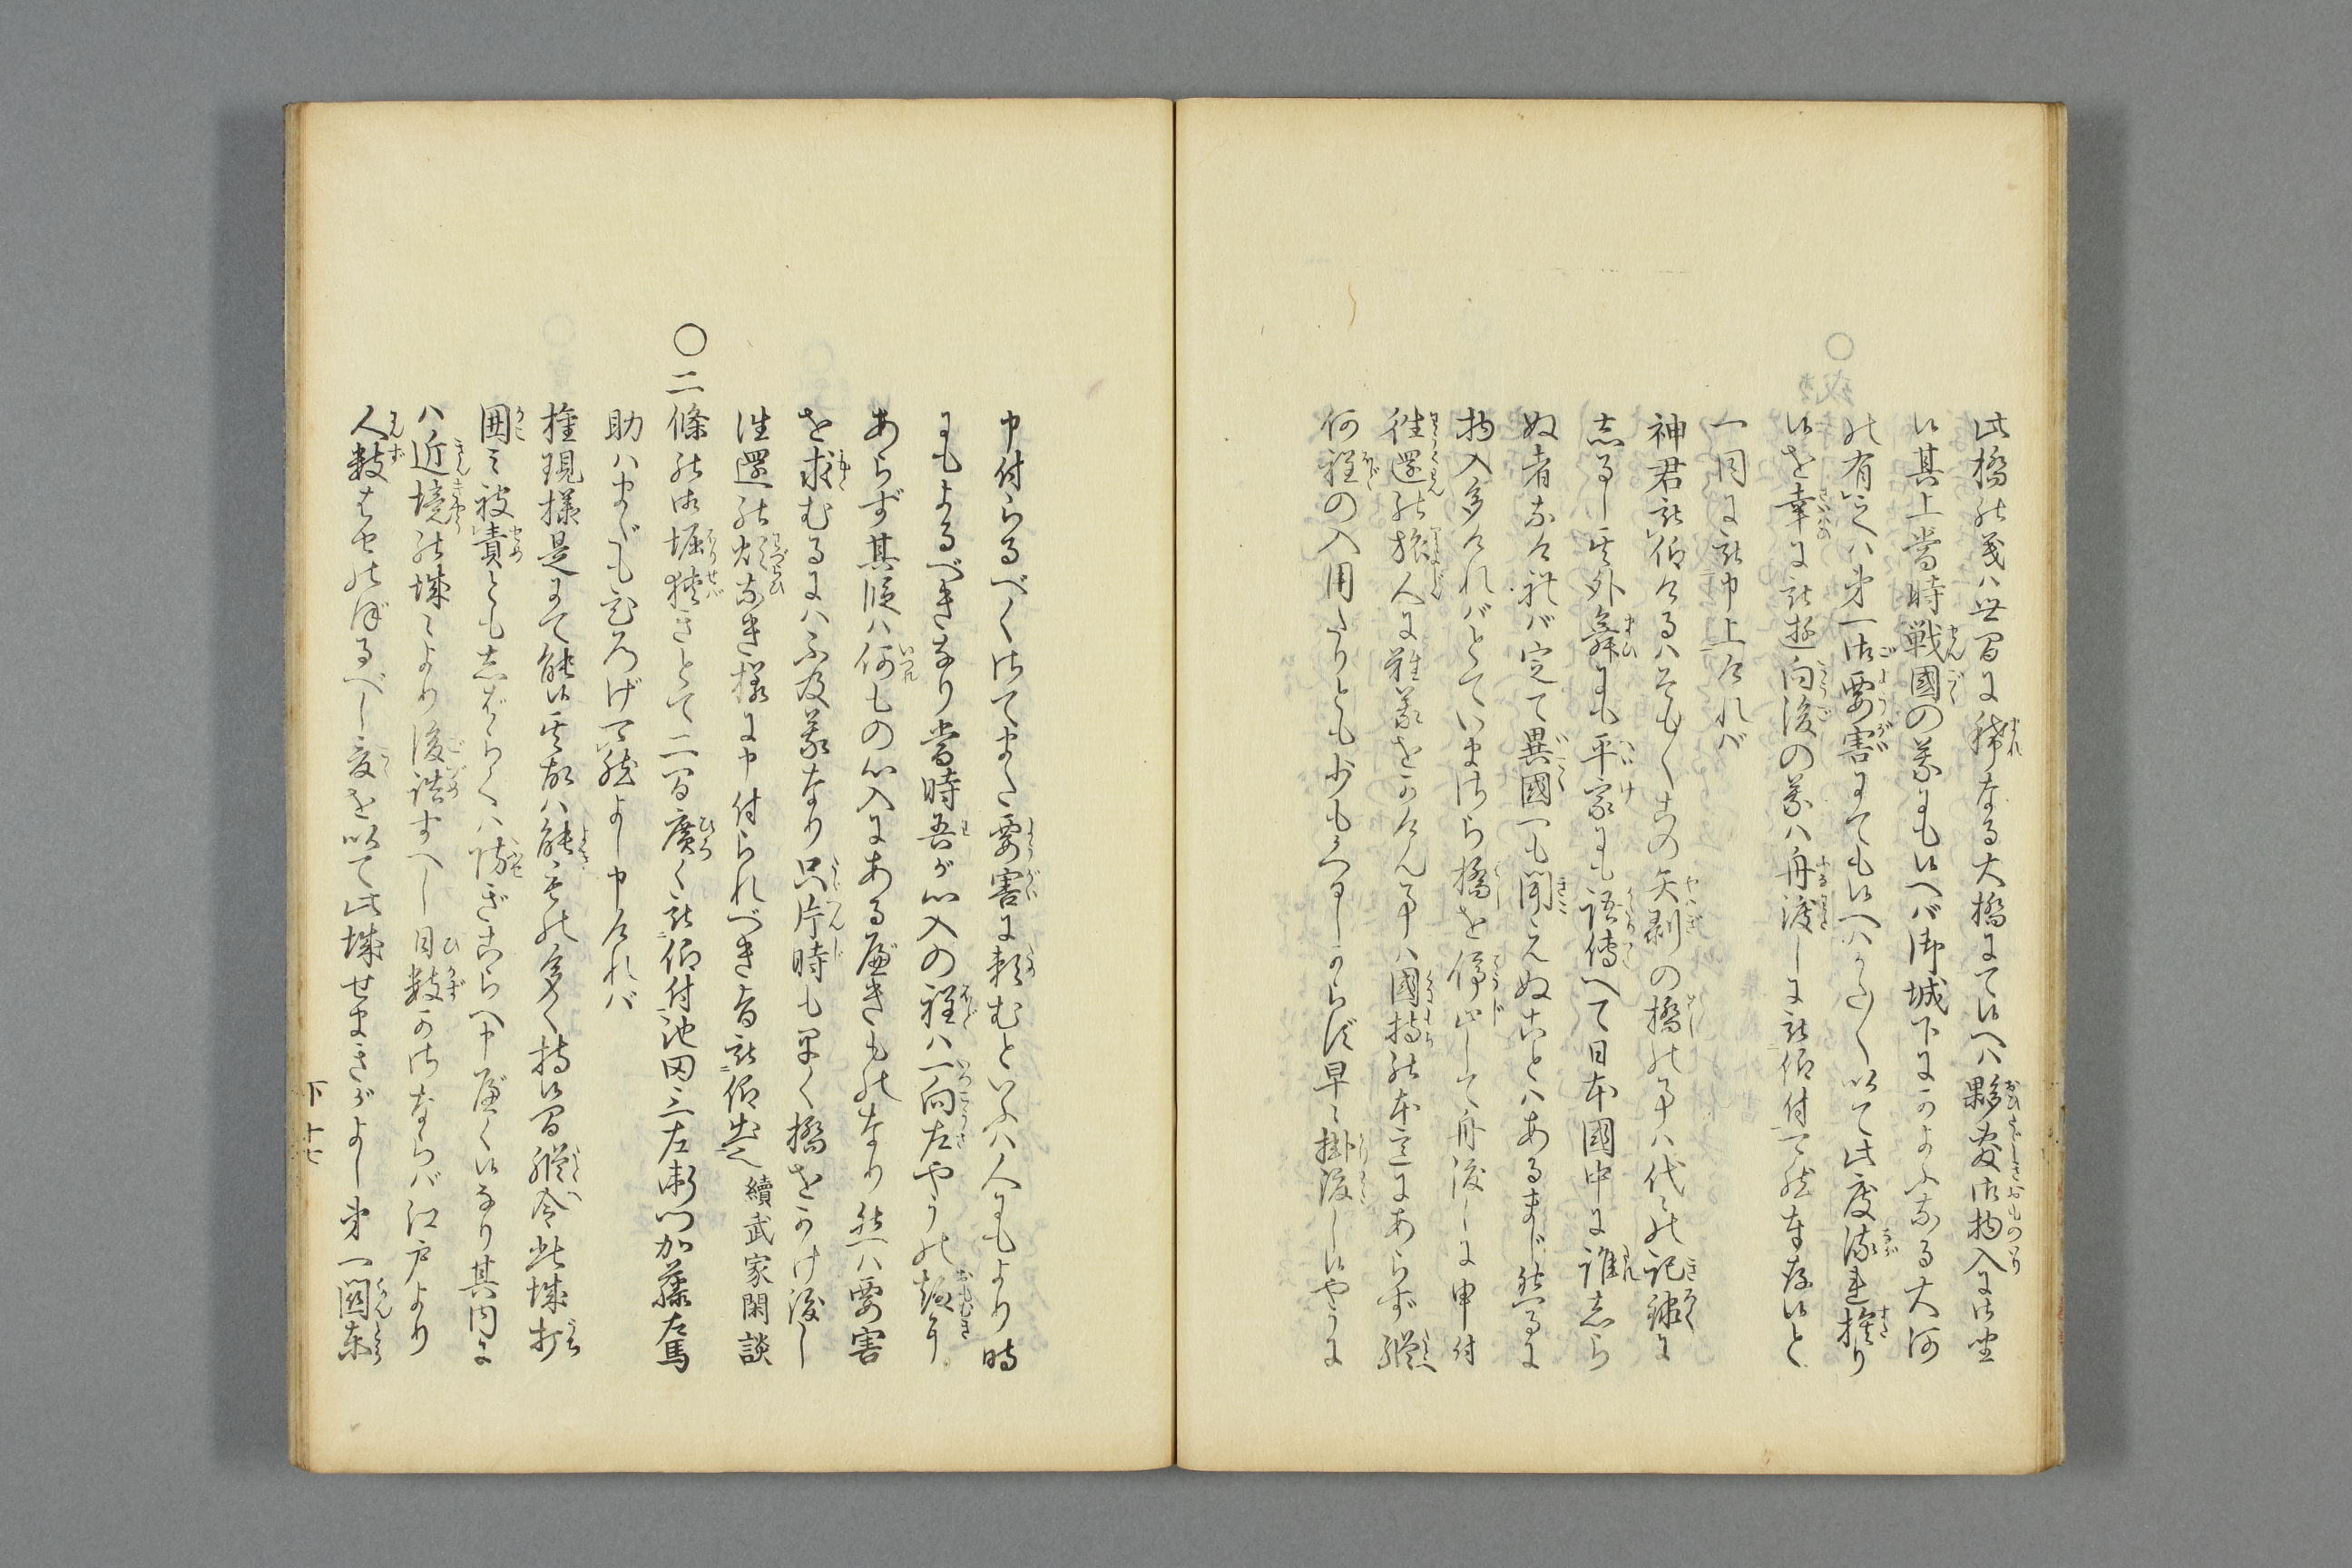 此橋の義ハ世間に稀なる大橋にて候へハ夥敷御物入に御坐
候其上當時戦國の義にも候へバ御城下にかやうなる大河
の有之ハ第一御要害にても候へハかた〱以て此度流れ損り
候を幸に被遊向後の義ハ舟渡しに被仰付可然奉存候と
一同に被申上けれバ
神君被仰けるハそも〱此の矢剥の橋の事ハ代〻の記録に
志るし其外舞にも平家にも語傳へて日本國中に誰志ら
ぬ者なけれバ定て異國へも聞えぬことハあるまじ然るに
物入多けれバとていまさら橋を停止して舟渡しに申付
徃還の旅人に難義をかけん事ハ國持の本意にあらず縦
何程の入用たりとも少もくるしからず早〻掛渡し候やうに
申付らるべく候てまた要害に頼むといふハ人にもより時
にもよるべきなり當時吾が心入の程ハ一向左やうの趣に
あらず其段ハ何もの心入にある處きものなり然ハ要害
を求むるにハ不及義なり只片時も早く橋をかけ渡し
徃還の煩なき様に申付られべき旨被仰出之 續武家閑談
〇二條の御堀狭きとて二間廣く被仰付池田三左衛門加藤左馬
助ハまだもひろげ可然よし申けれバ
権現様是にて能候其故ハ能〻の多く持候間縦令此城打
囲ミ被責とも志ばらくハ防ぎこらへ申處く候なり其内に
ハ近境の城〻より後詰すへし日数かさならバ江戸より
人数はせのぼるべし爰を以て此城せまきがよし第一關東
下 十七